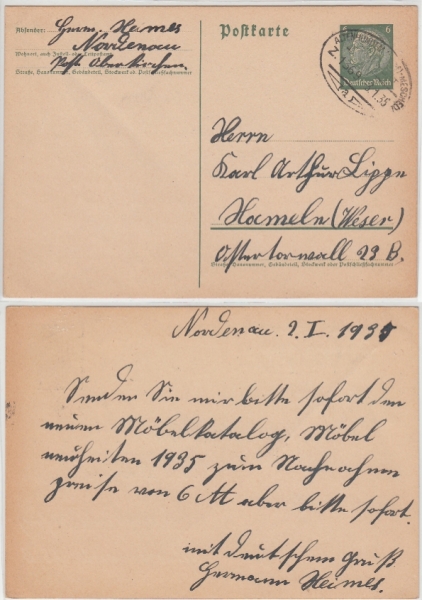 Postkarte
Absender: Herm. Heimes
Nordenau
Wohnort, auch Zustell- oder Leitpostamt
Post Oberkirchen.
Straße, Hausnummer, Gebäudeteil, Stockwerk od. Postschließfachnummer
6
Deutsches Reich
35
Herrn
Karl Arthur Lippe
Hameln (Weser)
Ostertorwall 23 B.
Straße, Hausnummer, Gebäudeteil, Stockwerk oder Postschließfachnummer
Nordenau. 2. I. 1935
Senden Sie mir bitte sofort den
neuen Möbelkatalog, Möbel
neuheiten 1935 zum Nachnahme
preise von 6 M aber bitte sofort.
mit deutschem Gruß
Hermann Heimes.